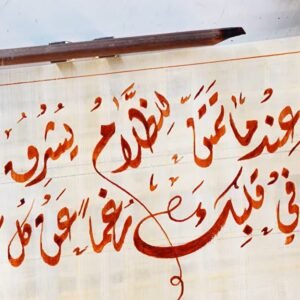 عِندما تمتنَّ لِلظَّلامِ يُشرِقُ
في قلبكَ رُغماً عن كل